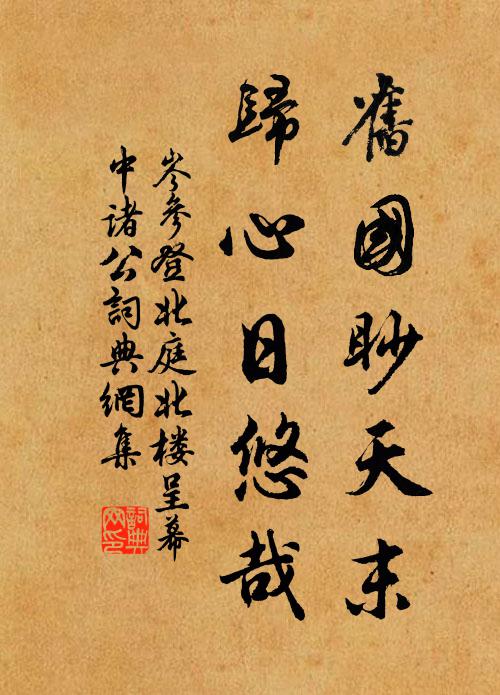 舊國眇天末
歸心日悠哉
岑參登北庭北楼呈幕
中诸公詞典網集
詞典网印